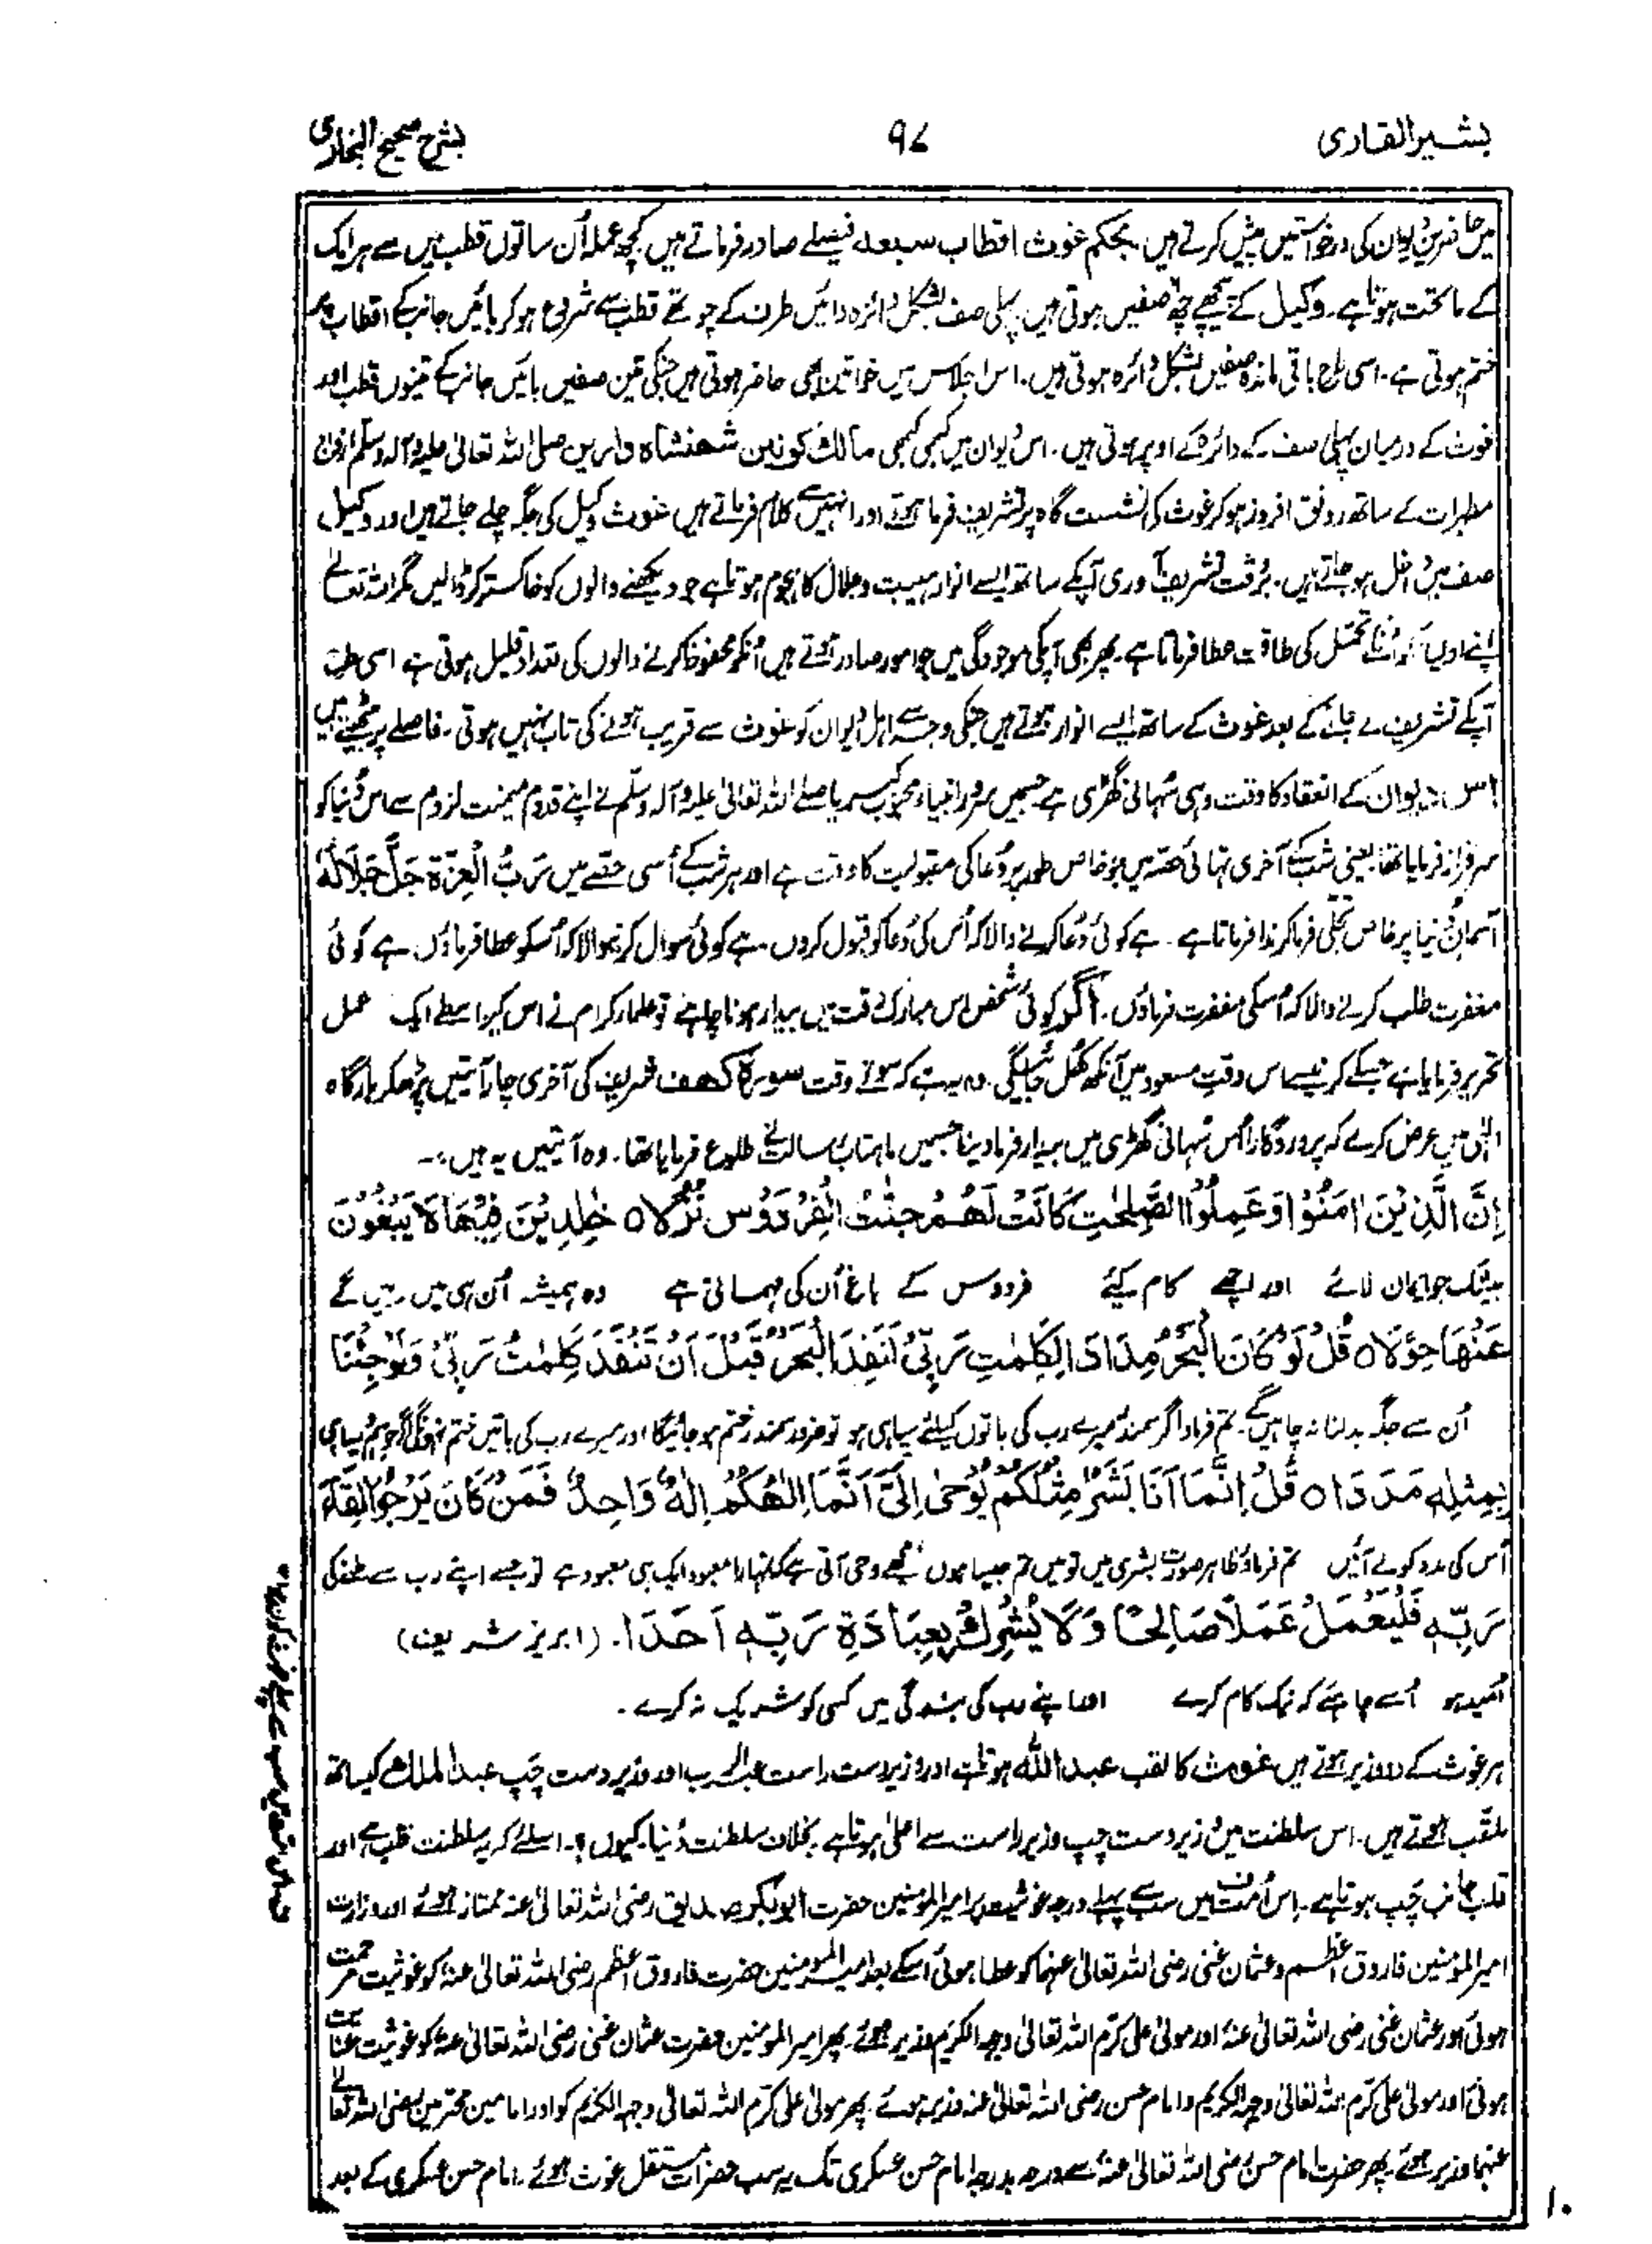 بشیرالقاری
۹۷
بشرح صحیح البخاری
میں حاضرین دیوان کی درخواستیں پیش کرتے ہیں۔ بحکم غوث اقطاب سبعہ فیصلے صادر فرماتے ہیں کچھ عملہ اُن ساتوں قطب میں سے ہر ایک
کے ماتحت ہوتا ہے۔ وکیل کے پیچھے چھ صفیں ہوتی ہیں پہلی صف بشکل دائرہ دائیں طرف کے چوتھے قطب سے شروع ہو کر بائیں جانب کے اقطاب پر
ختم ہوتی ہے۔ اسی طرح باقی ماندہ صفیں بشکل دائرہ ہوتی ہیں۔ اس اجلاس میں خواتین بھی حاضر ہوتی ہیں جنکی تین صفیں بائیں جانب کے تینوں قطب اور
غوث کے درمیان پہلی صف کے دائرے کے اوپر ہوتی ہیں۔ اس دیوان میں کبھی کبھی مالک کونین شہنشاہ دارین صلی اللہ تعالیٰ علیہ وآلہ وسلم ازواج
مطہرات کے ساتھ رونق افروز ہو کر غوث کی نشست گاہ پر تشریف فرما ہوتے اور انہیں سے کلام فرماتے ہیں غوث وکیل کی جگہ چلے جاتے ہیں اور وکیل
صف میں داخل ہو جاتے ہیں۔ بوقت تشریف آوری آپکے ساتھ ایسے انوار ہیبت و جلال کا ہجوم ہوتا ہے جو دیکھنے والوں کو خاکستر کر ڈالیں مگر اللہ تعالیٰ
اپنے اولیاء کو اُنکے تحمل کی طاقت عطا فرماتا ہے۔ پھر بھی آپکی موجودگی میں جو امور صادر ہوتے ہیں اُنکو محفوظ کرنے والوں کی تعداد قلیل ہوتی ہے اسی طرح
آپکے تشریف لے جانے کے بعد غوث کے ساتھ ایسے انوار ہوتے ہیں جنکی وجہ سے اہل دیوان کو غوث سے قریب ہونے کی تاب نہیں ہوتی۔ فاصلے پر بیٹھتے ہیں
اس دیوان کے انعقاد کا وقت وہی سُہانی گھڑی ہے جسمیں سرور انبیاء محبوب کبریا صلے اللہ تعالیٰ علیہ وآلہ وسلّم نے اپنے قدوم میمنت لزوم سے اس دُنیا کو
سرفراز فرمایا تھا یعنی شب کے آخری تہائی حصّہ میں جو خاص طور پر دُعا کی مقبولیت کا وقت ہے اور ہر شب کے اُسی حصّے میں رَبُّ الْعِزَّۃ جَلَّ جَلَالُہٗ
آسمانِ دُنیا پر خاص تجلّی فرما کر ندا فرماتا ہے۔ ہے کوئی دُعا کرنے والا کہ اُس کی دُعا کو قبول کروں۔ ہے کوئی سوال کرنیوالا کہ اُسکو عطا فرماؤں ہے کوئی
مغفرت طلب کرنے والا کہ اُسکی مغفرت فرماؤں۔ اگر کوئی شخص اس مبارک وقت میں بیدار ہونا چاہے تو علماء کرام نے اس کیواسطے ایک عمل
تحریر فرمایا ہے جسکے کرنے سے اس وقتِ مسعود میں آنکھ کُھل جائیگی۔ وہ یہ ہے کہ سوتے وقت سورۃ کھف شریف کی آخری چار آیتیں پڑھکر بارگاہ
الٰہی میں عرض کرے کہ پروردگار اُس سُہانی گھڑی میں بیدار فرما دینا جسمیں ماہتاب رسالت نے طلوع فرمایا تھا۔ وہ آیتیں یہ ہیں:۔
اِنَّ الَّذِیْنَ اٰمَنُوْا وَعَمِلُوا الصّٰلِحٰتِ کَانَتْ لَھُمْ جَنّٰتُ الْفِرْدَوْسِ نُزُلًا ہ خٰلِدِیْنَ فِیْھَا لَا یَبْغُوْنَ
بیشک جو ایمان لائے اور اچھے کام کیئے فردوس کے باغ اُن کی مہمانی ہے وہ ہمیشہ اُن ہی میں رہیں گے
عَنْھَا حِوَلًا ہ قُلْ لَّوْ کَانَ الْبَحْرُ مِدَادًا لِّکَلِمٰتِ رَبِّیْ لَنَفِدَ الْبَحْرُ قَبْلَ اَنْ تَنْفَدَ کَلِمٰتُ رَبِّیْ وَلَوْ جِئْنَا
اُن سے جگہ بدلنا نہ چاہیں گے۔ تم فرماؤ اگر سمندر میرے رب کی باتوں کیلئے سیاہی ہو تو ضرور سمندر ختم ہو جائیگا اور میرے رب کی باتیں ختم نہ ہونگی اگرچہ ہم ویسا ہی
بِمِثْلِہٖ مَدَدًا ہ قُلْ اِنَّمَا اَنَا بَشَرٌ مِّثْلُکُمْ یُوْحٰی اِلَیَّ اَنَّمَا اِلٰھُکُمْ اِلٰہٌ وَّاحِدٌ فَمَنْ کَانَ یَرْجُوْا لِقَآءَ
اُس کی مدد کو لے آئیں تم فرماؤ ظاہر صورت بشری میں تو میں تم جیسا ہوں مجھے وحی آتی ہے کہ تمہارا معبود ایک ہی معبود ہے تو جسے اپنے رب سے ملنے کی
رَبِّہٖ فَلْیَعْمَلْ عَمَلًا صَالِحًا وَّلَا یُشْرِكْ بِعِبَادَۃِ رَبِّہٖ اَحَدًا۔ (ابریز شریف)
اُمید ہو اُسے چاہئے کہ نیک کام کرے اور اپنے رب کی بندگی میں کسی کو شریک نہ کرے۔
ہر غوث کے دو وزیر ہوتے ہیں غوث کا لقب عبداللّٰہ ہوتا ہے اور وزیر دست راست عبدالرب اور وزیر دست چَپ عبدالملک کیساتھ
ملقّب ہوتے ہیں۔ اس سلطنت میں وزیر دست چپ وزیر راست سے اعلیٰ ہوتا ہے بخلاف سلطنت دُنیا۔ کیوں؟۔ اسلئے کہ یہ سلطنت قلب ہے اور
قلب جانب چَپ ہوتا ہے۔ اِس اُمت میں سب سے پہلے درجہ غوثیت پر امیرالمؤمنین حضرت ابوبکر صدیق رضی اللہ تعالیٰ عنہ ممتاز ہوئے اور وزارت
امیرالمؤمنین فاروق اعظم و عثمان غنی رضی اللہ تعالیٰ عنہما کو عطا ہوئی اسکے بعد امیرالمومنین حضرت فاروق اعظم رضی اللہ تعالیٰ عنہٗ کو غوثیت مرحمت
ہوئی اور عثمان غنی رضی اللہ تعالیٰ عنہٗ اور مولیٰ علی کرّم اللہ تعالیٰ وجہہ الکریم وزیر ہوئے۔ پھر امیرالمومنین حضرت عثمان غنی رضی اللہ تعالیٰ عنہٗ کو غوثیت عنایت
ہوئی اور مولیٰ علی کرّم اللہ تعالیٰ وجہہ الکریم و امام حسن رضی اللہ تعالیٰ عنہ وزیر ہوئے۔ پھر مولیٰ علی کرّم اللہ تعالیٰ وجہہ الکریم کو اور امامین محترمین رضی اللہ تعالیٰ
عنہما وزیر ہوئے پھر حضرت امام حسن رضی اللہ تعالیٰ عنہٗ سے درجہ بدرجہ امام حسن عسکری تک یہ سب حضرات مستقل غوث ہوئے۔ امام حسن عسکری کے بعد
۱۰